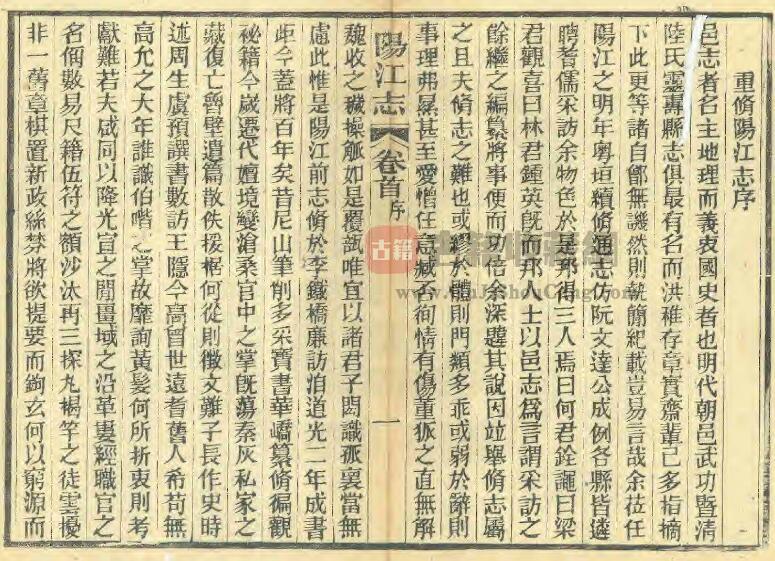 重脩陽江志序
邑志者名主地理而義衷國史者也明代朝邑武功暨清
陸氏靈壽縣志俱最有名而洪稚存章實齋輩已多指摘
下此更等諸自鄶無譏然則執簡紀載豈易言哉余莅任
陽江之明年粵垣續脩通志仿阮文達公成例各縣皆遴
聘耆儒采訪余物色於是邦得三人焉曰何君銓譝曰梁
君觀喜曰林君鍾英旣而邦人士以邑志爲言謂采訪之
餘繼之編纂將事便而功倍余深韙其說因竝舉脩志屬
之且夫脩志之難也或繆於體則門類多乖或弱於辭則
事理弗㬎甚至愛憎任意臧否徇情有傷董狐之直無解
魏收之穢操觚如是覆瓿唯宜以諸君子閎識孤襄當無
慮此惟是陽江前志脩於李鐵橋廉訪洎道光二年成書
歫今蓋將百年矣昔尼山筆削多采寶書華嶠纂脩徧觀
祕籍今歲遷代嬗境變滄桑官中之掌旣蕩秦灰私家之
藏復亡魯壁遺篇散佚援椐何從則徵文難子長作史時
述周生虞預譔書數訪王隱今高曾世遠耆舊人希苟無
高允之大年誰識伯喈之掌故靡詢黃髮何所折衷則考
獻難若夫咸同以降光宣之閒畺域之沿革婁經職官之
名偁數易尺籍伍符之額沙汰再三探丸楬竿之徒雲擾
非一舊章棋置新政絲棼將欲提要而鉤玄何以窮源而
陽江志
卷首
序
一
古籍